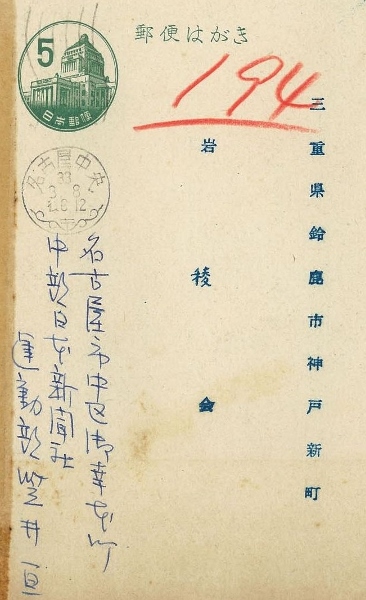 郵便はがき
5
日本郵便
194
三重県鈴鹿市神戸新町
岩稜会
名古屋中央
33
3.8
名古屋市中区御幸本町
中部日本新聞社
運動部笠井亘